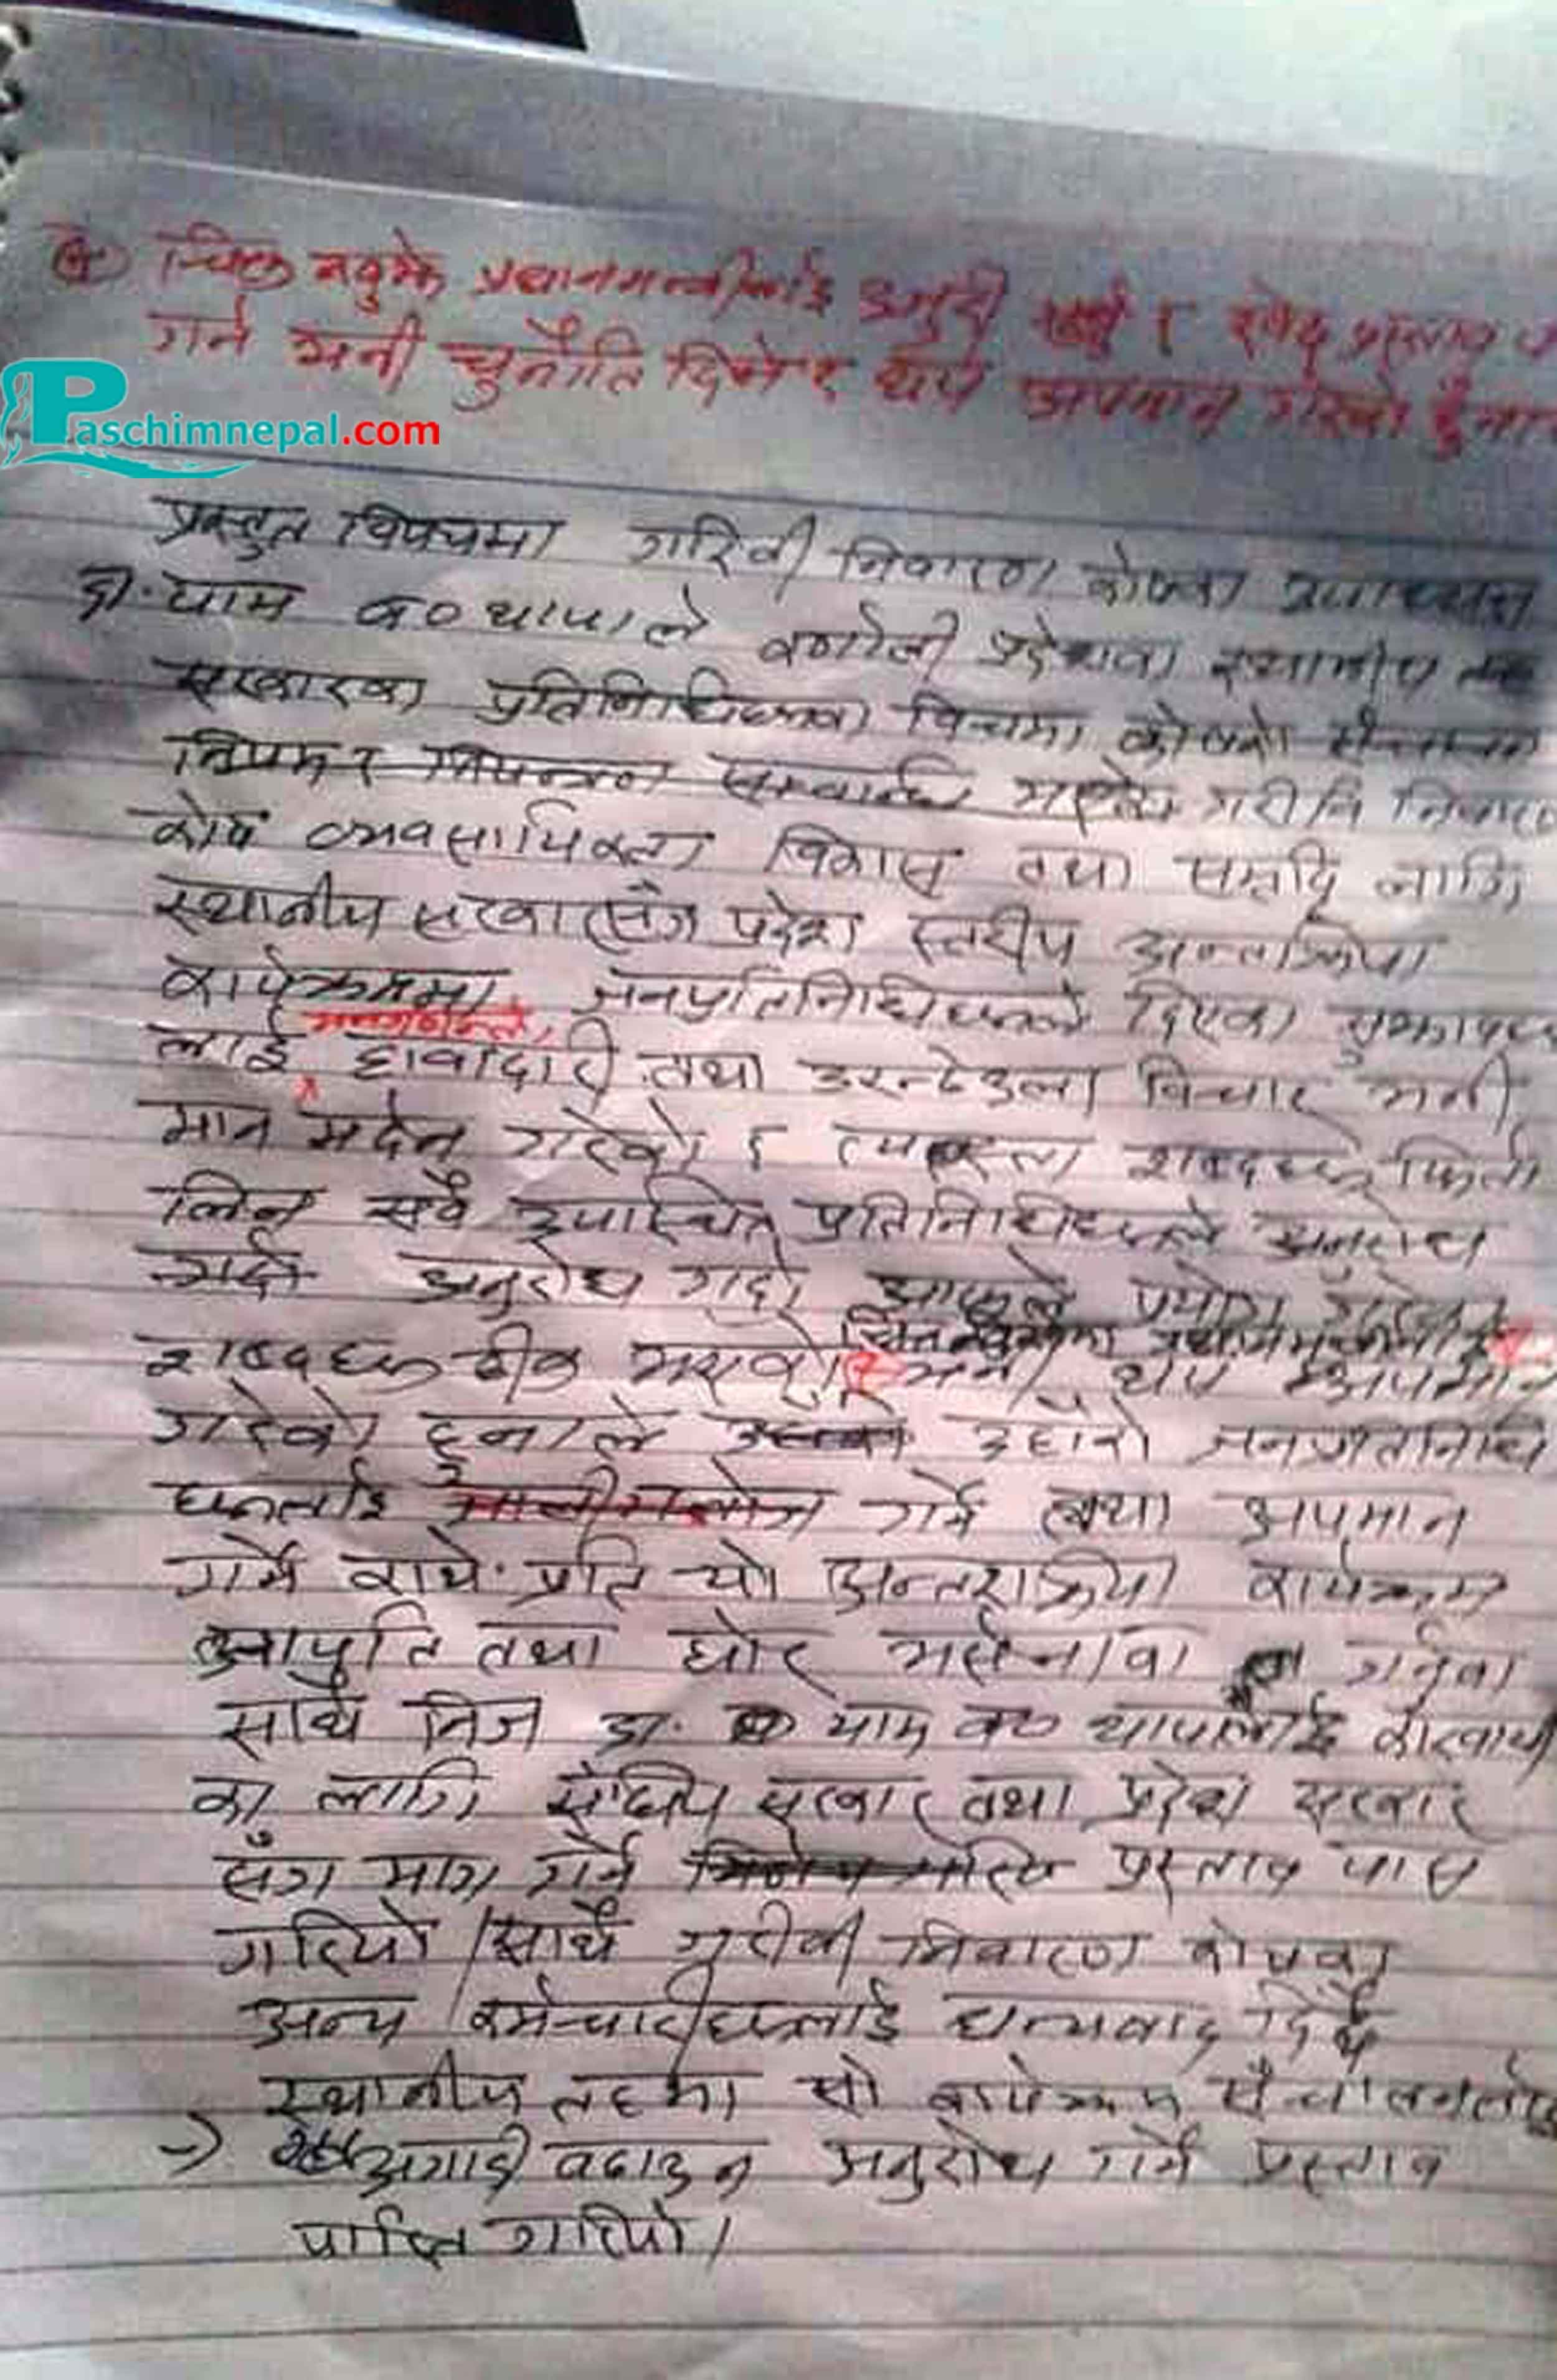 चित्त नबुझे प्रधानमन्त्रीलाई उजुरी गर्नु र
गर्न भनी चुनौति दिएर थप अपमान गरेको हुँना
Paschimnepal.com
प्रस्तुत विषयमा गरिवी निवारण कोषका उपाध्यक्ष
डा. याम ब० थापाले कर्णाली प्रदेशका स्थानीय
सरकारका प्रतिनिधिहरुका विचमा कोषको
गरीवि निवारण
कोष व्यवसायिकता विकास तथा समृद्दि लागि
स्थानीय सरकारसँग प्रदेश स्तरीय अन्तरक्रिया
कार्यक्रममा जनप्रतिनिधिहरुले दिएका सुझावहरु
लाई हावादारी तथा उरन्ठेउला विचार भनी
मान मर्दन गरेको र त्यस्ता शब्दहरु फिर्ता
लिन सवै उपस्थित प्रतिनिधिहरुले अनुरोध
गर्दा अनुरोध गर्दा आफुले प्रयोग गरेका
शब्दहरु ठीक भएको र भनी थप अपमान
गरेको हुनाले उहाँको जनप्रतिनिधि
हरुलाई गाली गलौज गर्ने तथा अपमान
गर्ने कार्य प्रति यो अन्तरक्रिया कार्यक्रम
आपत्ति तथा घोर भर्त्सना गर्नुका
साथै निज डा. याम ब० थापालाई कारवाही
का लागि संघीय सरकार तथा प्रदेश सरकार
सँग माग गर्ने प्रस्ताव पास
गरियो। साथै गरीवी निवारण कोषका
अन्य कर्मचारीहरुलाई धन्यवाद दिँदै
स्थानीय तहमा सो कार्यक्रम
→ अगाडी वढाउन अनुरोध गर्ने प्रस्ताव
पारित गरियो।